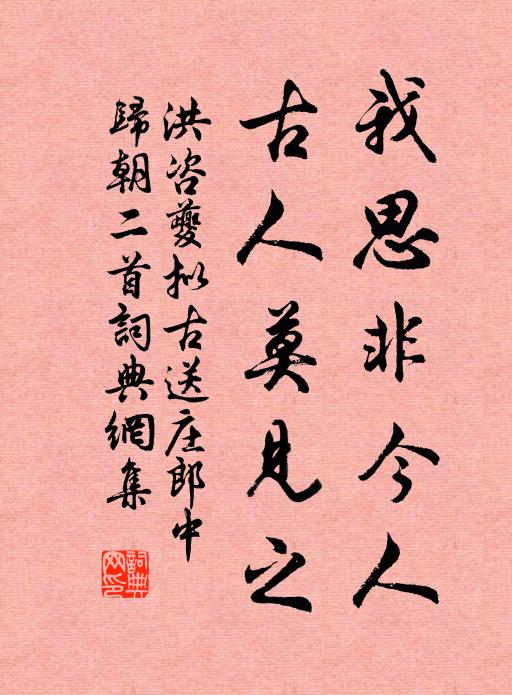 我思非今人
古人莫見之
洪咨夔拟古送庄郎中
歸朝二首詞典網集
詞典網印